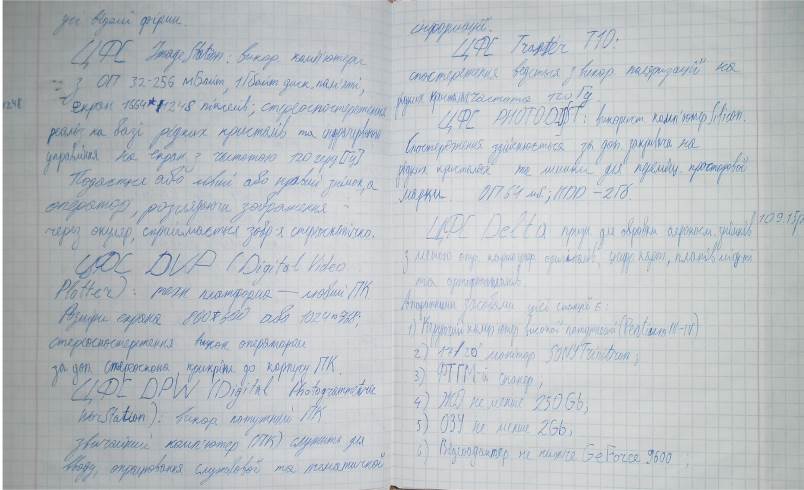 ЦФС Image Station: викор. комп'ютери
з ОП 32-256 мбайт, 1 Гбайт диск. пам'яті,
екран 1664*1248 пікселів; стереоспостереження
1248
реаліз. на базі рідких кристалів та
управління на екран з частотою 120 герц [Гц]
Подається або лівий або правий знімок, а
оператор, розглядаючи зображення
через окуляр, сприймається зобр-я стереоскопічно.
ЦФС DVP (Digital Video
Plotter): техн платформа — любий ПК
Розміри екрана 800*600 або 1024*768;
стереоспостертання викон оператором
за доп. стереоскопа, прикріпл. до корпусу ПК.
ЦФС DPW (Digital Photogrammetric
WorkStation): викор потужний ПК
звичайний комп'ютер (ПК) служить для
вводу, опрацювання слухової та тематичної
інформації.
ЦФС Traster T10:
спостереження ведеться з викор поляризації на
рідких кристалах частота 120 Гц
ЦФС PHOTOD : використ комп'ютер Silicon.
Спостереження здійснюється за доп. закривача на
рідких кристалах та мишки для переміщ. просторової
марки. ОП 64 мб; HDD – 2Гб.
10.9.15р
ЦФС Delta призн. для обробки аерокосм. знімків
з метою отр. координат цифр. карт, планів місцев.
та ортофотопланів.
Апаратними засобами цієї станції є:
1) Керуючий комп'ютер високої потужності (Pentium III-IV)
2) 17/20" монітор SONY Trinitron;
3)
4) ЖД не менше 250Gb;
5) ОЗУ не менше 2Gb;
6) Відеоадаптер не нижче GeForce 9600;